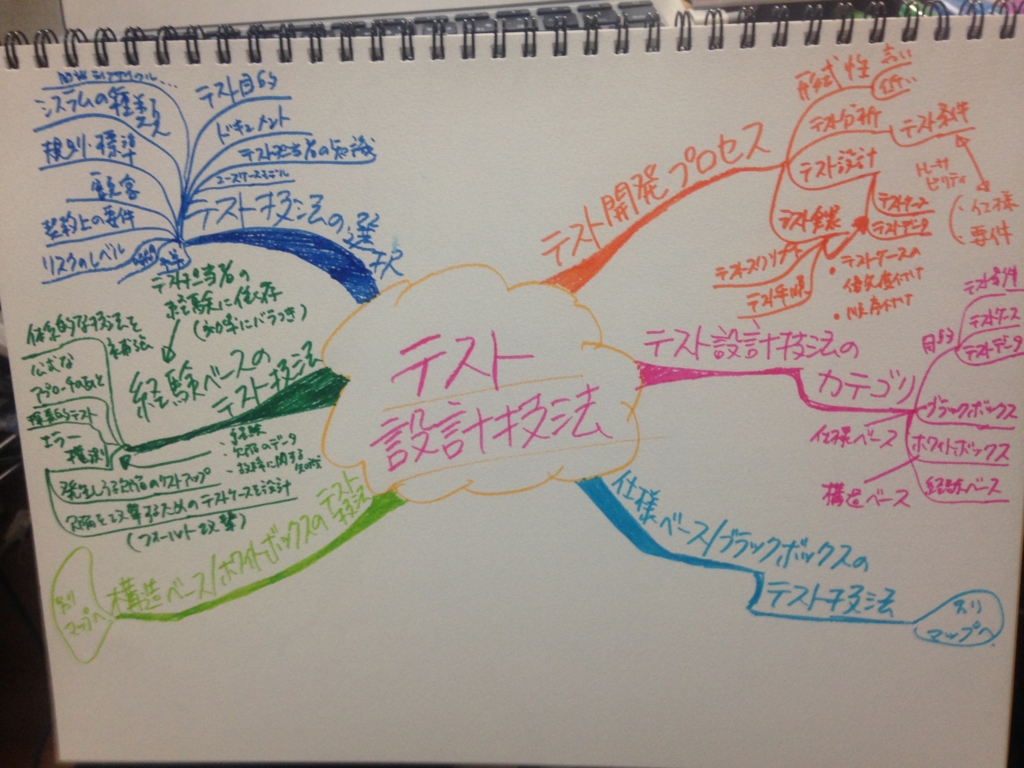 テスト
設計技法
テスト開発プロセス
形式性
高い
低い
テスト分析
テスト条件
トレーサ
ビリティ
仕様
要件
テスト設計
テストケース
テストデータ
テスト実装
テストスクリプト
テスト手順
・テストケースの
優先度付け
・順序付け
テスト設計技法の
カテゴリ
目的
テスト条件
テストケース
テストデータ
ブラックボックス
仕様ベース
ホワイトボックス
構造ベース
経験ベース
仕様ベース/ブラックボックスの
テスト技法
別
マップへ
テスト技法の選択
テスト目的
ドキュメント
テスト担当者の知識
ユースケースモデル
システムの種類
規則・標準
顧客
契約上の要件
リスクのレベル
経験ベースの
テスト技法
テスト担当者の
経験に依存
(効率にバラつき)
体系的な技法を
補強
公式な
アプローチのあと
探索的テスト
エラー
推測
・経験
・欠陥のデータ
・故障に関する
知識
発生しうる欠陥のリストアップ
欠陥を攻撃するためのテストケースを設計
(フォールト攻撃)
構造ベース/ホワイトボックスのテスト
技法
別
マップへ